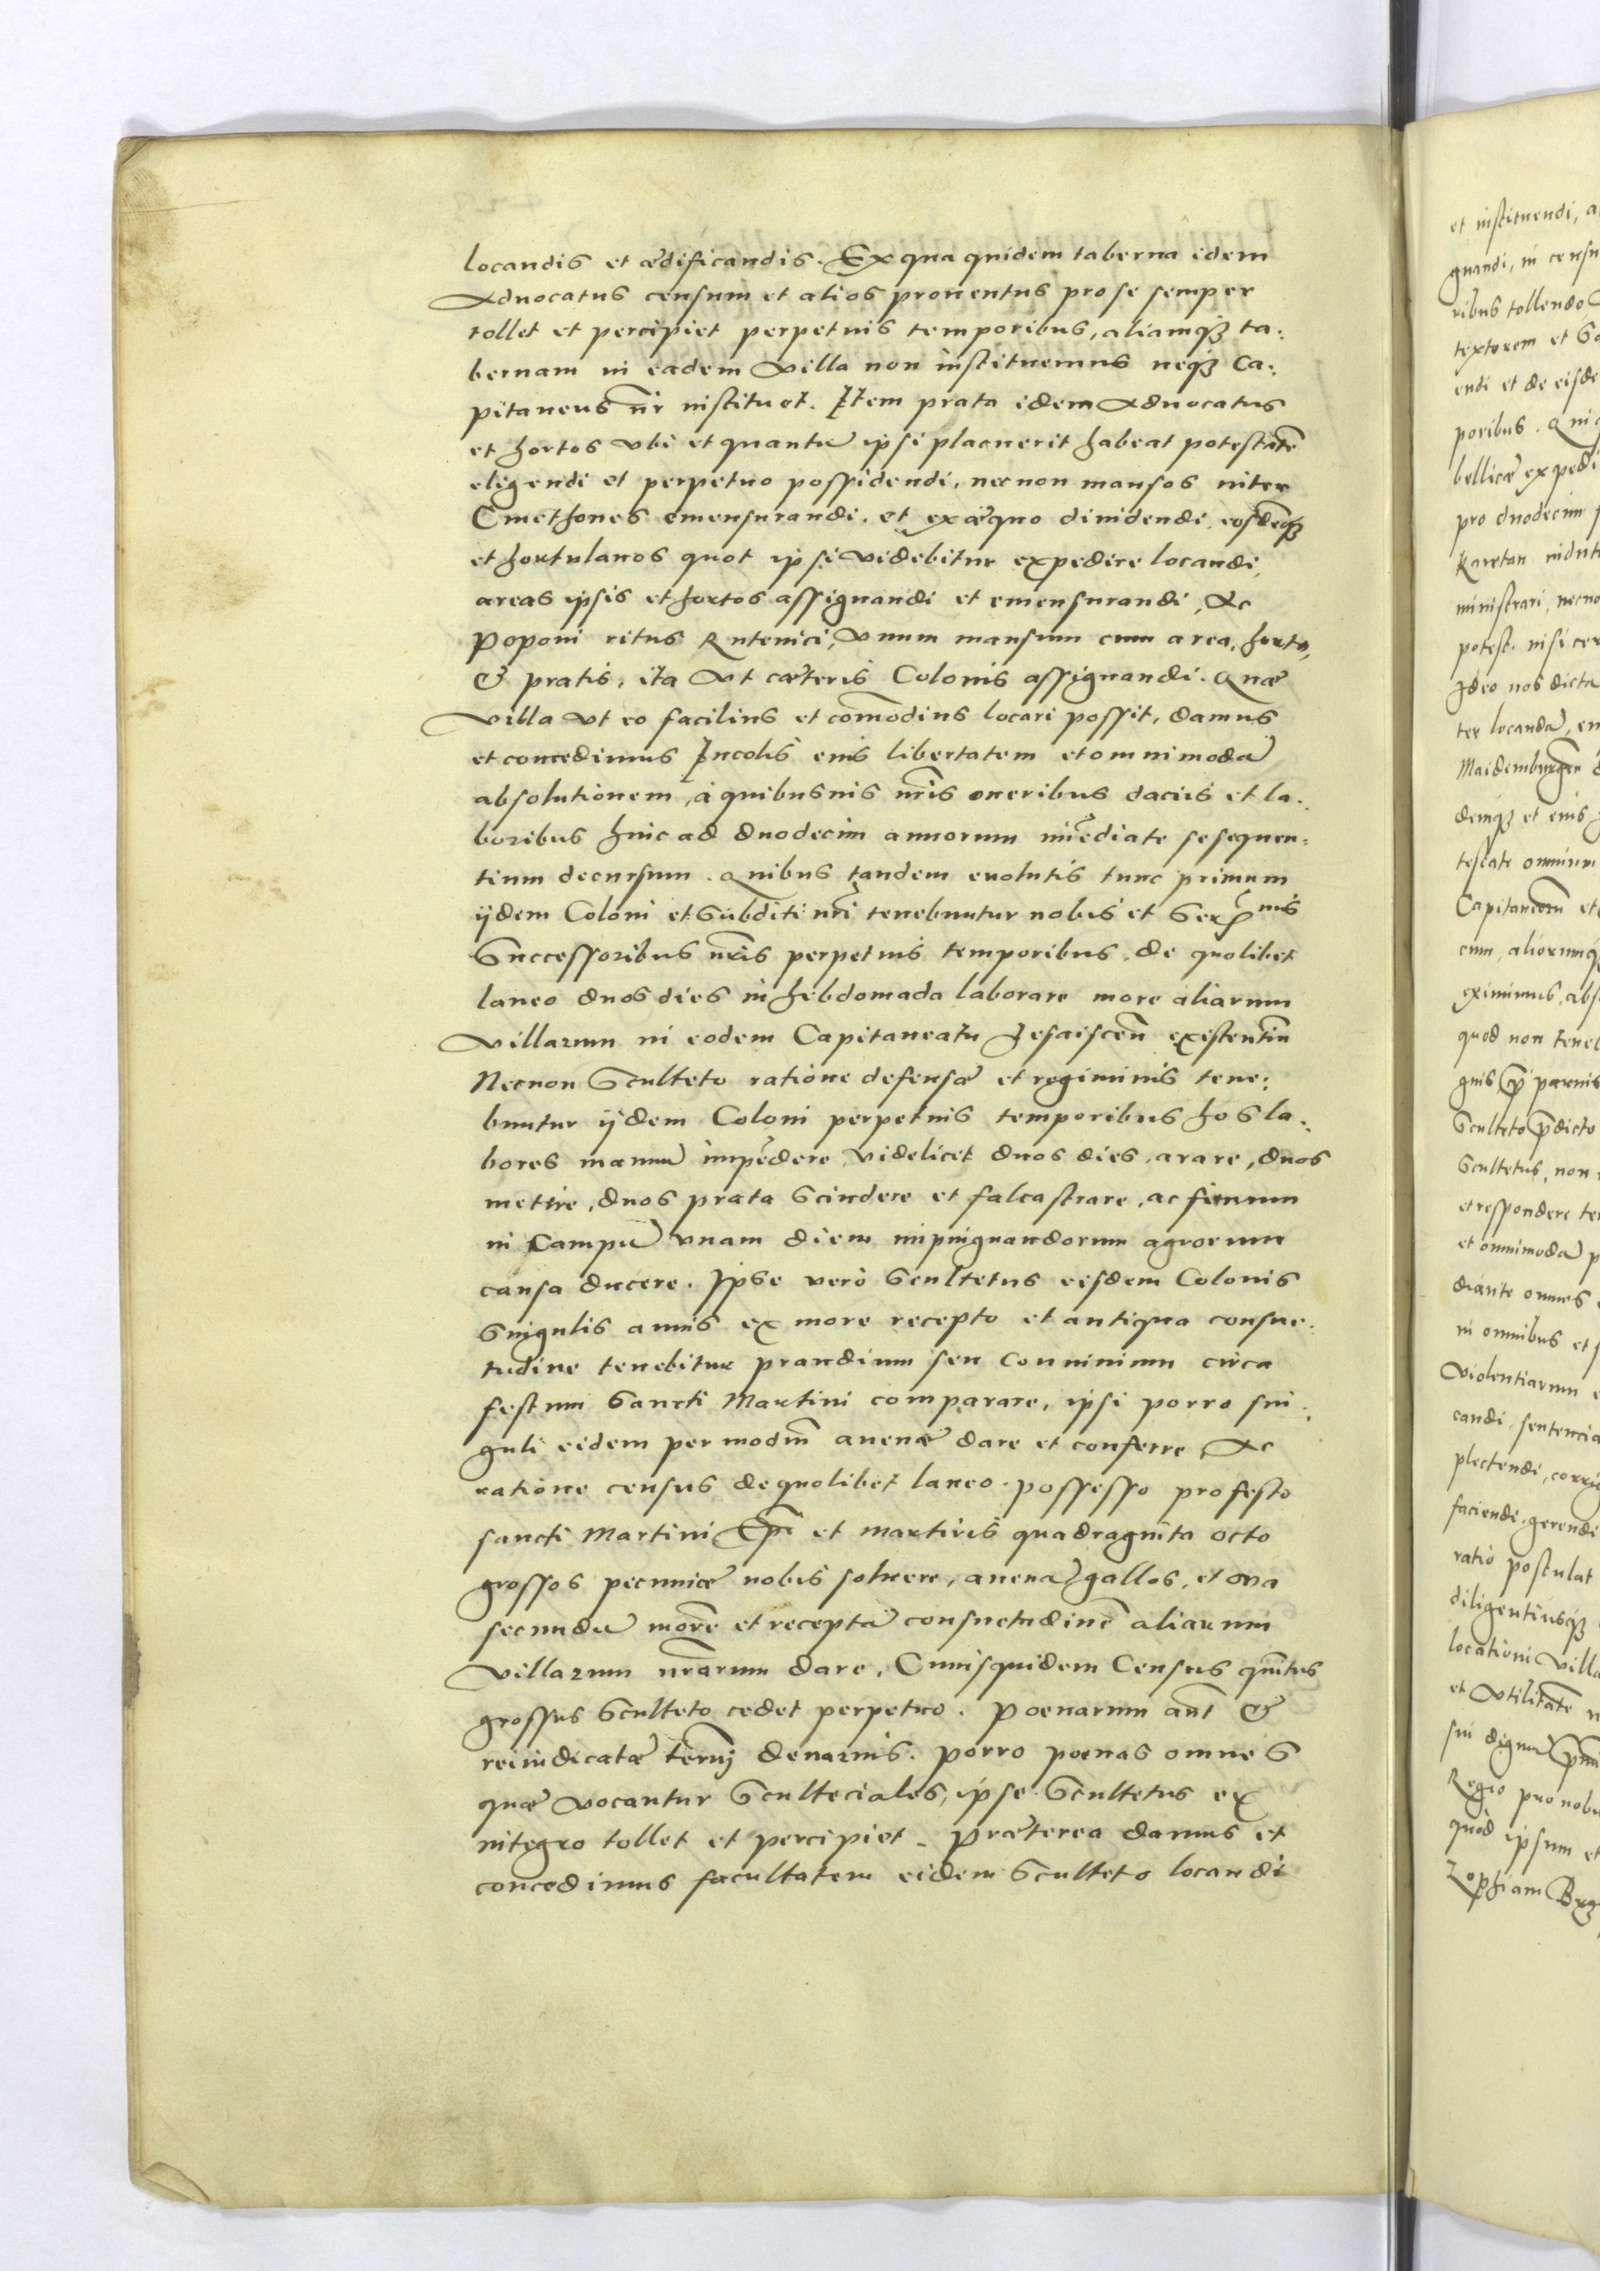 locandis et ædificandis. Ex qua quidem taberna idem
Aduocatus censum et alios prouentus pro se semper
tollet et percipiet perpetuis temporibus, aliamq3 ta:
bernam in eadem villa non instituemus neq3 Ca:
pitaneus nr̃ instituet. Item prata idem Aduocatus
et hortos vbi et quantũ ipsi placuerit habeat potestatẽ
eligendi et perpetuo possidendi, necnon mansos inter
Cmethones emensurandi, et ex æquo diuidendi, eosdẽq3
et hortulanos quot ipsi videbitur expedire locandi,
areas ipsis et hortos assignandi et emensurandi, Ac
Poponi ritus Rutenici, vnum mansum cum area, horto,
& pratis, ita vt cæteris Colonis assignandi. Quæ
villa vt eo facilius et com̃odius locari possit, damus
et concedimus Incolis eius libertatem et omnimodã
absolutionem, à quibusuis nr̃is oneribus daciis et la:
boribus hinc ad duodecim annorum im̃ediate se sequen:
tium decursum. Quibus tandem euolutis tunc primum
ijdem Coloni et Subditi nr̃i tenebuntur nobis et Serꝫ mis
Successoribus nr̃is perpetuis temporibus, de quolibet
laneo duos dies in hebdomada laborare more aliarum
villarum in eodem Capitaneatu existentiũ
Necnon Sculteto ratione defensæ et regiminis tene:
buntur ijdem Coloni perpetuis temporibus hos la:
bores manuũ impẽdere, videlicet duos dies, arare, duos
metire, duos prata scindere et falcastrare, ac fimum
in Campũ vnam diem impinguandorum agrorum
causa ducere. Ipse verò Scultetus eisdem Colonis
Singulis annis ex more recepto et antiqua consue:
tudine tenebitur prandium seu conuiuium circa
festum Sancti Martini comparare, ipsi porro sin:
guli eidem per modiũ auenæ dare et conferre, Ac
ratione census de quolibet laneo possesso pro festo
sancti Martini Ep̃i et martiris quadraginta octo
grossos pecuniæ nobis soluere, auenã, gallos, et oua
secundũ morẽ et receptã consuetudinẽ aliarum
villarum nr̃arum dare, Cuiusquidem Census quintus
grossus Sculteto cedet perpetuo. Poenarum aũt &
reiudicatæ denarius. Porro poenas omnes
quæ vocantur Scultetiales, ipse Scultetus ex
integro tollet et percipiet. Præterea damus et
concedimus facultatem eidem Sculteto locandi
et instituendi,
in censu
ribus tollendo
textorem et
endi et de eisde
poribus. Qui
bellicæ expedi
pro duodecim
ministrari, necno
potest, nisi cer
Ideo nos dicta
ter locandã, em
deniq3 et eius
Capitaneorũ et
cum, aliorumq3
eximimus, abs
quod non teneb
Sculteto p̃dicto
Scultetus, non
et respondere te
et omnimodã p
diante omnes
in omnibus et
violentiarum
candi, sentencia
plectendi, corri
faciendi, gerendi
ratio postulat
diligentiusq3
locationi villæ
et vtilitate
quòd ipsum et